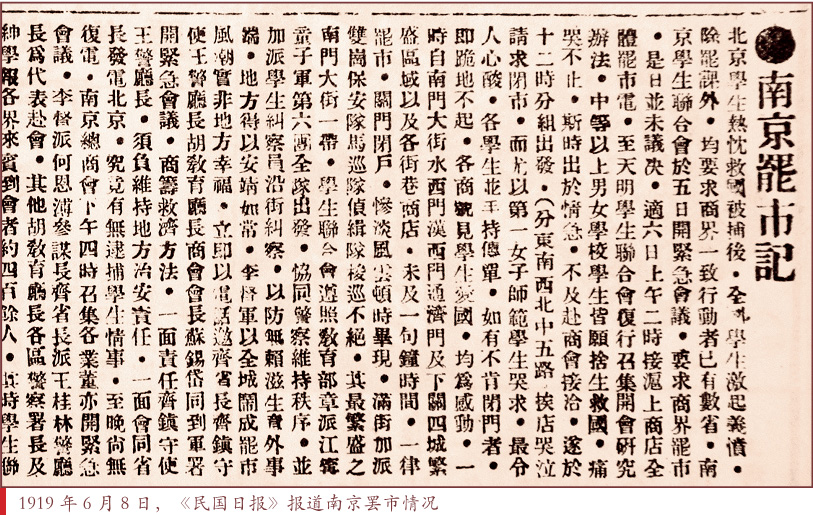 南京罷市記
北京學生熱忱救國被捕後·全學生激起義憤·
除罷課外·均要求商界一致行動者已有數省·南
京學生聯合會於五日開緊急會議·要求商界罷市
·是日並未議决·適六日上午二時接滬上商店全
體罷市電·至天明學生聯合會復行召集開會研究
辦法·中等以上男女學校學生皆願捨生救國·痛
哭不止·斯時出於情急·不及赴商會接洽·遂於
十二時分組出發·(分東南西北中五路)挨店哭泣
請求閉市·而尤以第一女子師範學生哭求·最令
人心酸·各學生並手持傳單·如有不肯閉門者·
即跪地不起·各商號見學生愛國·均爲感動·一
時自南門大街水西門漢西門通濟門及下關四城繁
盛區域以及各街巷商店·未及一句鐘時間·一律
罷市·關門閉戶·慘淡風雲頓時畢現·滿街加派
雙崗保安隊馬巡隊偵緝隊梭巡不絕·其最繁盛之
南門大街一帶·學生聯合會遵照敎育部章派江寗
童子軍第六團全隊出發·協同警察維持秩序·並
加派學生糾察員沿街糾察·以防無賴滋生意外事
端·地方得以安靖如常·李督軍以全城閙成罷市
風潮實非地方幸福·立即以電話邀齊省長齊鎮守
使王警廳長胡敎育廳長商會會長蘇錫岱同到軍署
開緊急會議·商籌救濟方法·一面責任齊鎮守使
王警廳長·須負維持地方治安責任·一面會同省
長發電北京·究竟有無逮捕學生情事·至晚尚無
復電·南京總商會下午四時召集各業董亦開緊急
會議·李督派何恩溥參謀長齊省長派王桂林警廳
長爲代表赴會·其他胡敎育廳長各區警察署長及
紳學報各界來賓到會者約四百餘人·其時學生聯
1919 年 6 月 8 日，《民国日报》报道南京罢市情况